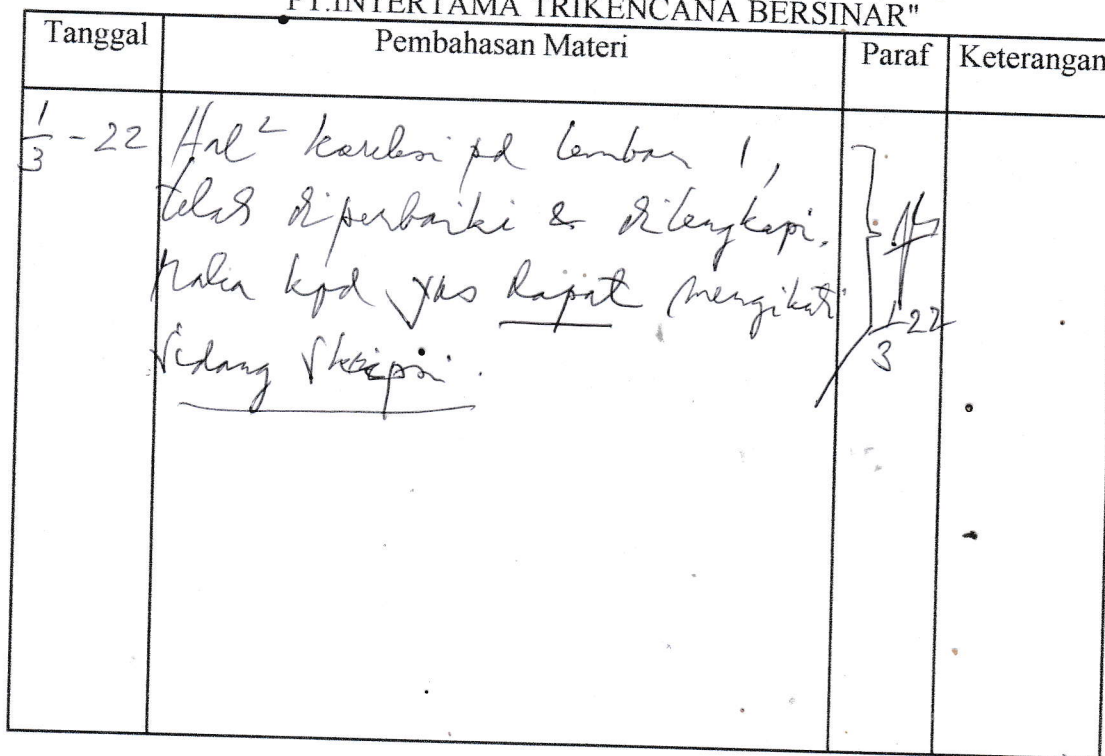 PT.INTERTAMA TRIKENCANA BERSINAR"
Tanggal Pembahasan Materi Paraf Keterangan
1/3 - 22 Hal² koreksi pd lembar 1,
telah diperbaiki & dilengkapi.
maka kpd ybs dapat mengikuti
sidang skripsi.
1/3 22